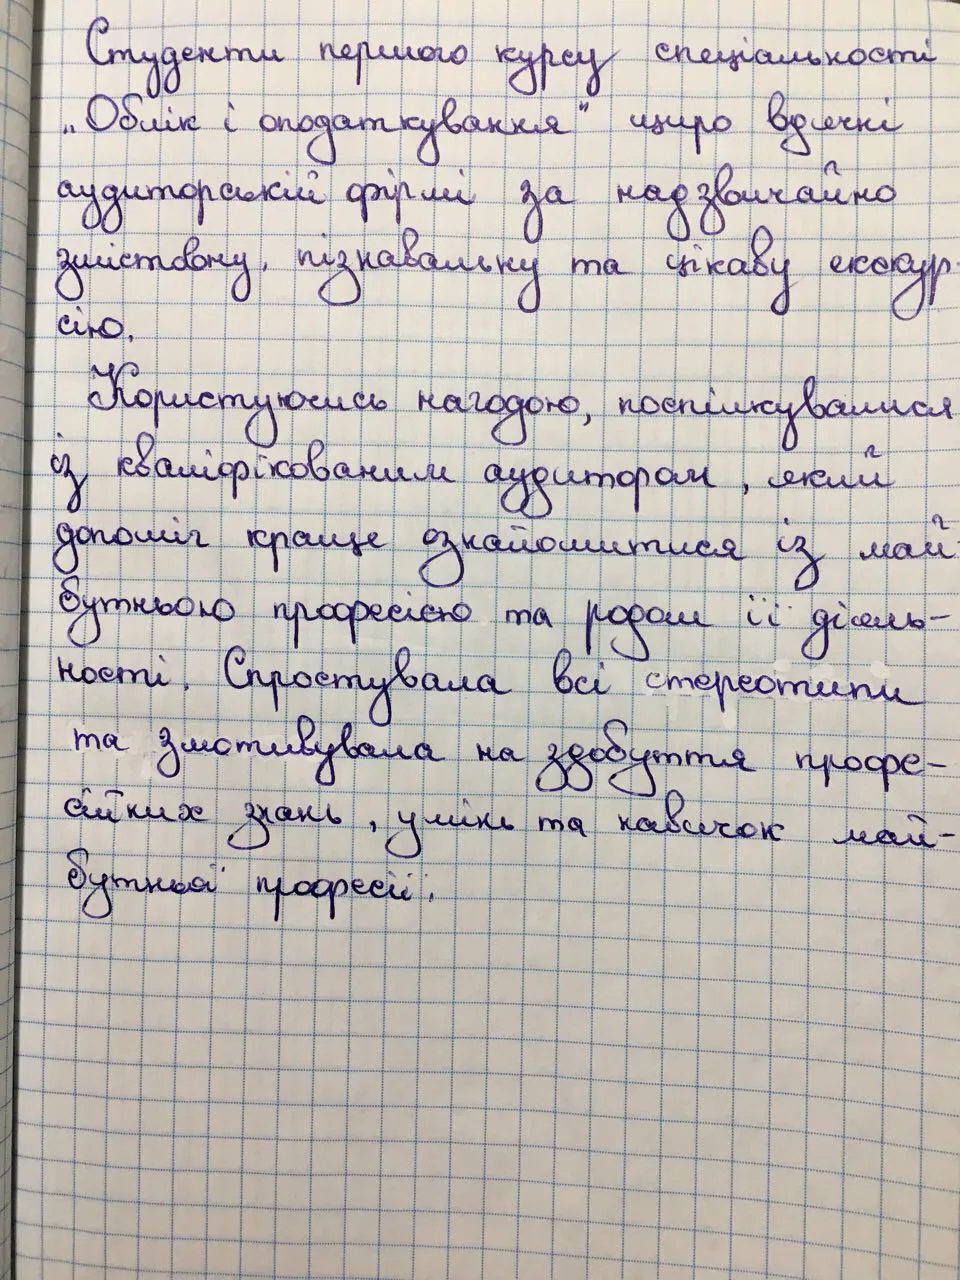 Студенти першого курсу спеціальності
„Облік і оподаткування" щиро вдячні
аудиторській фірмі за надзвичайно
змістовну, пізнавальну та цікаву екскур-
сію.
Користуючись нагодою, поспілкувалися
із кваліфікованим аудитором, який
допоміг краще ознайомитися із май
бутньою професією та родом її діяль-
ності. Спростувала всі стереотипи
та змотивувала на здобуття профе-
сійних знань, умінь та навичок май-
бутньої професії.